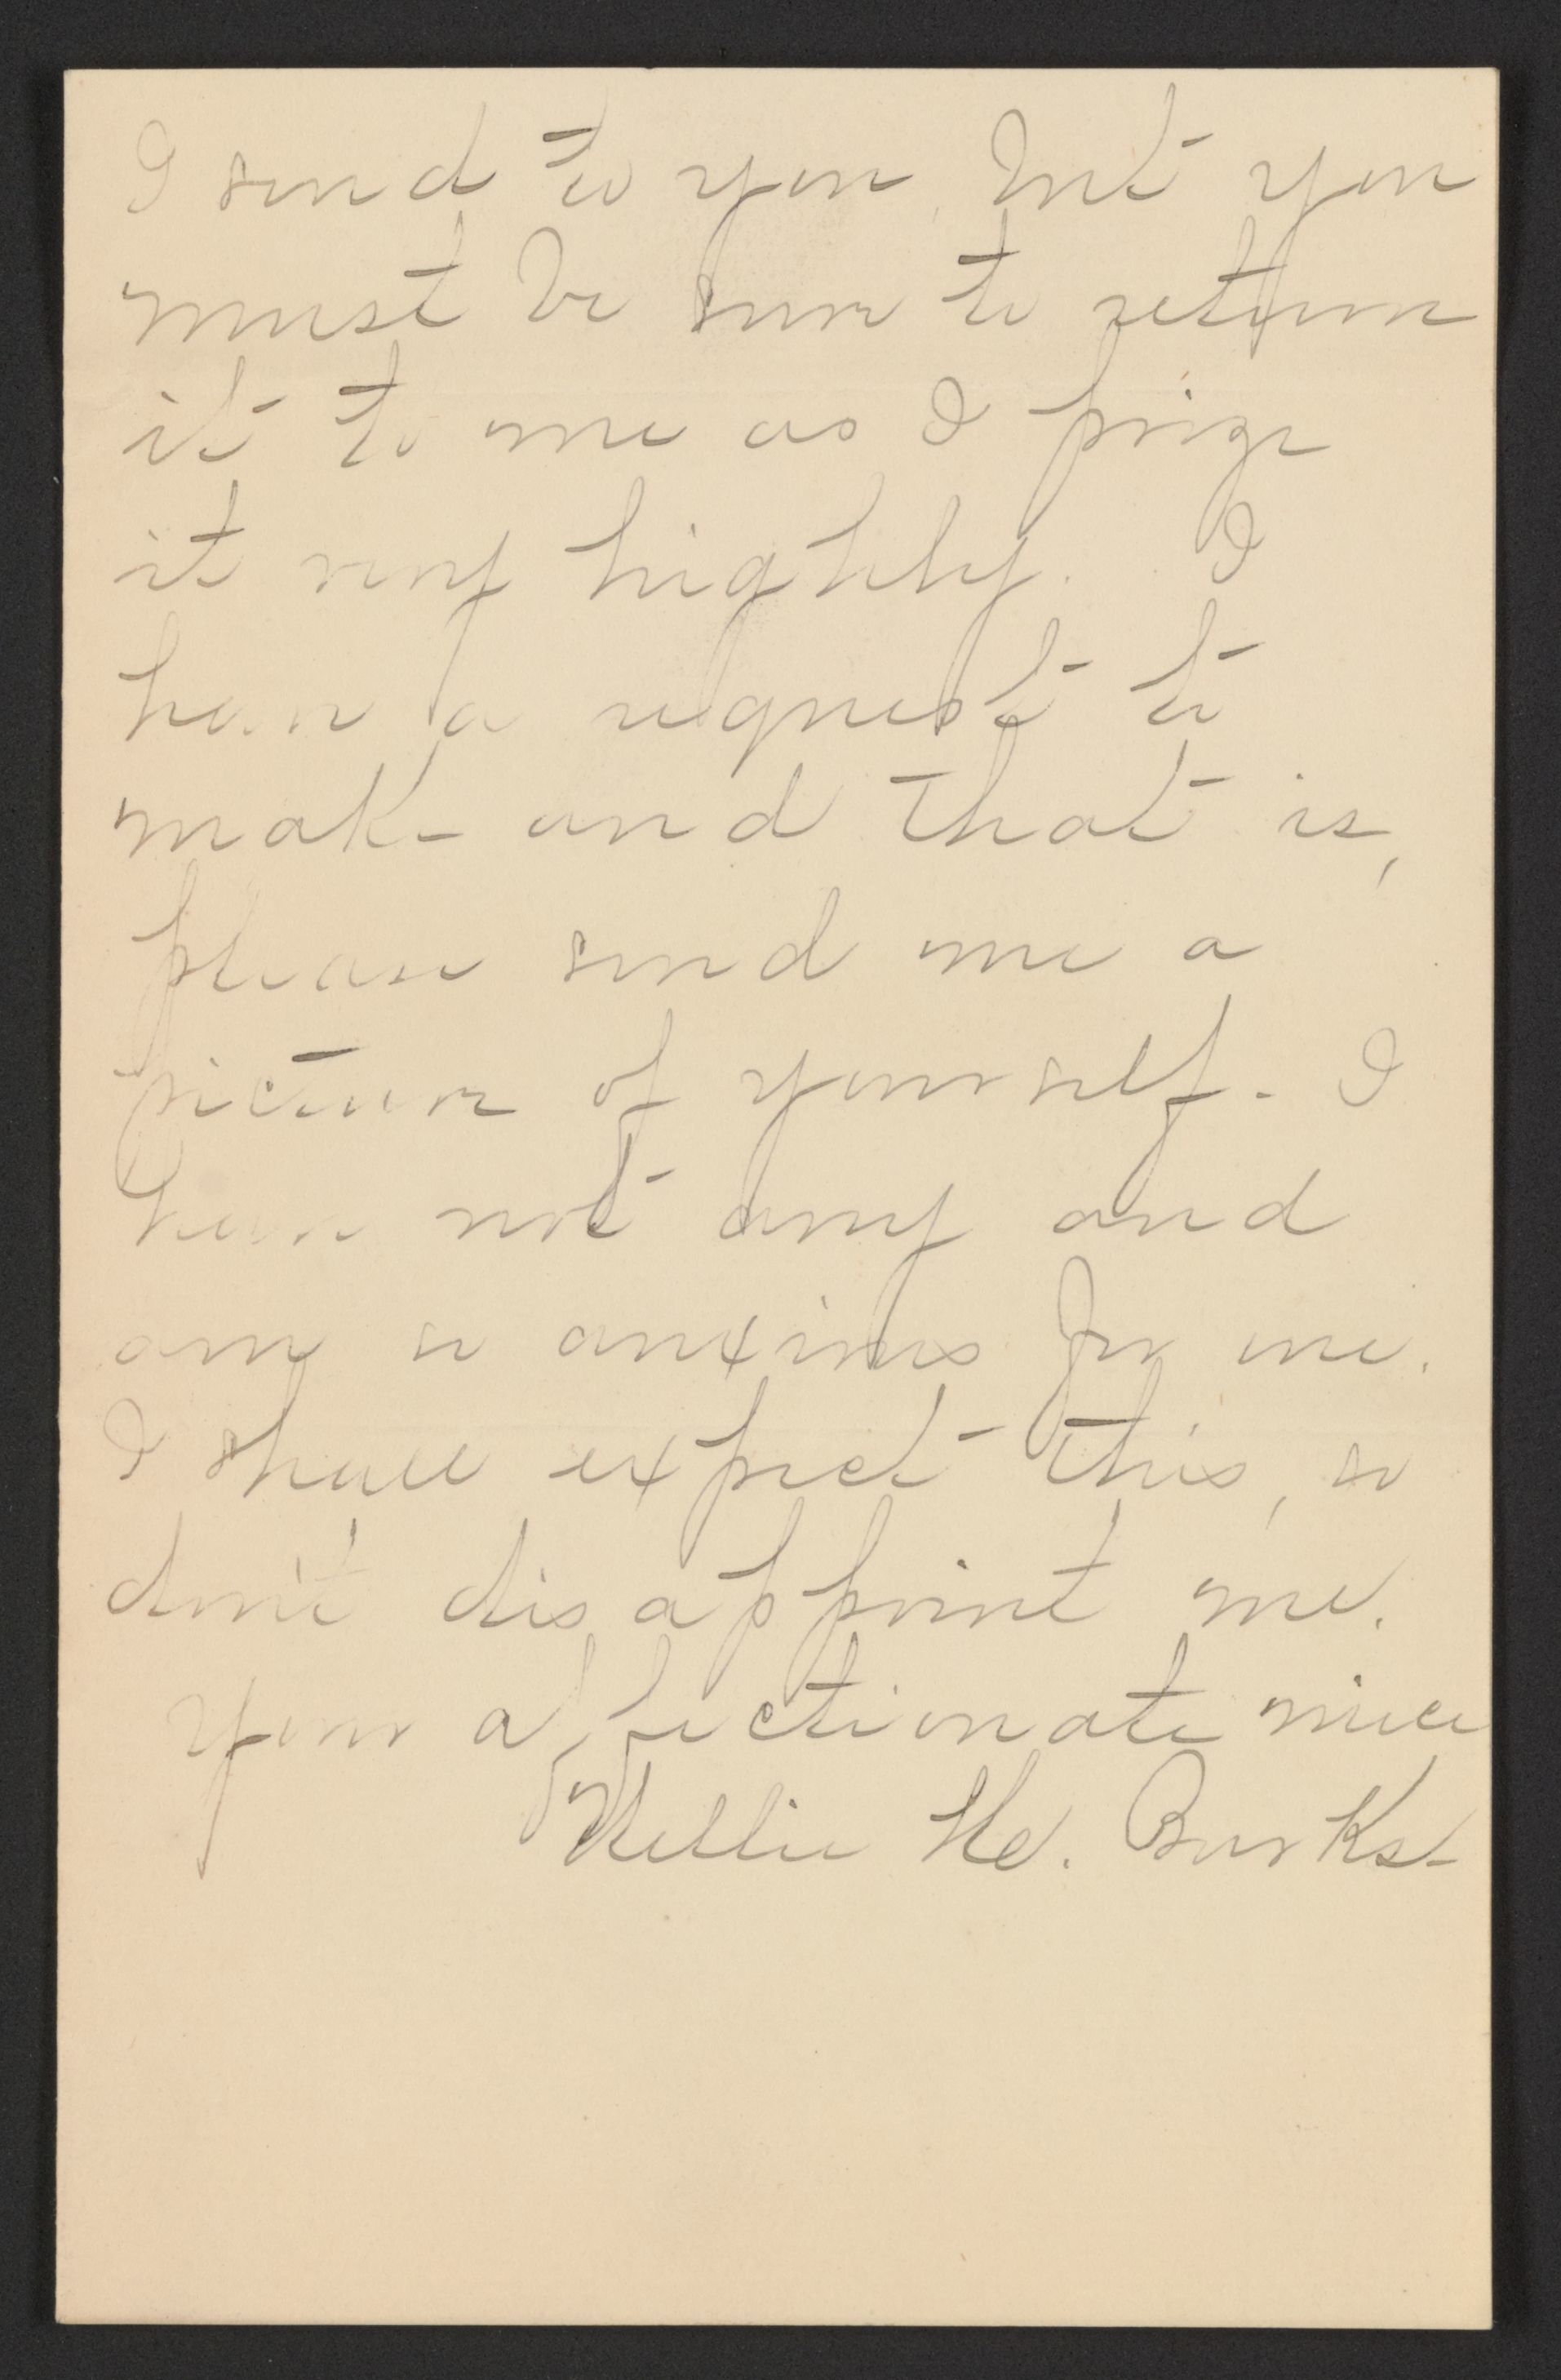 I send to you, but you
must be sure to return
it to me as I prize
it very highly. I
have a request to
make and that is,
please send me a
picture of yourself. I
have not any and
am so anxious for one.
I shall expect this, so
don't disappoint me.
Your affectionate niece
Nellie H. Burks.